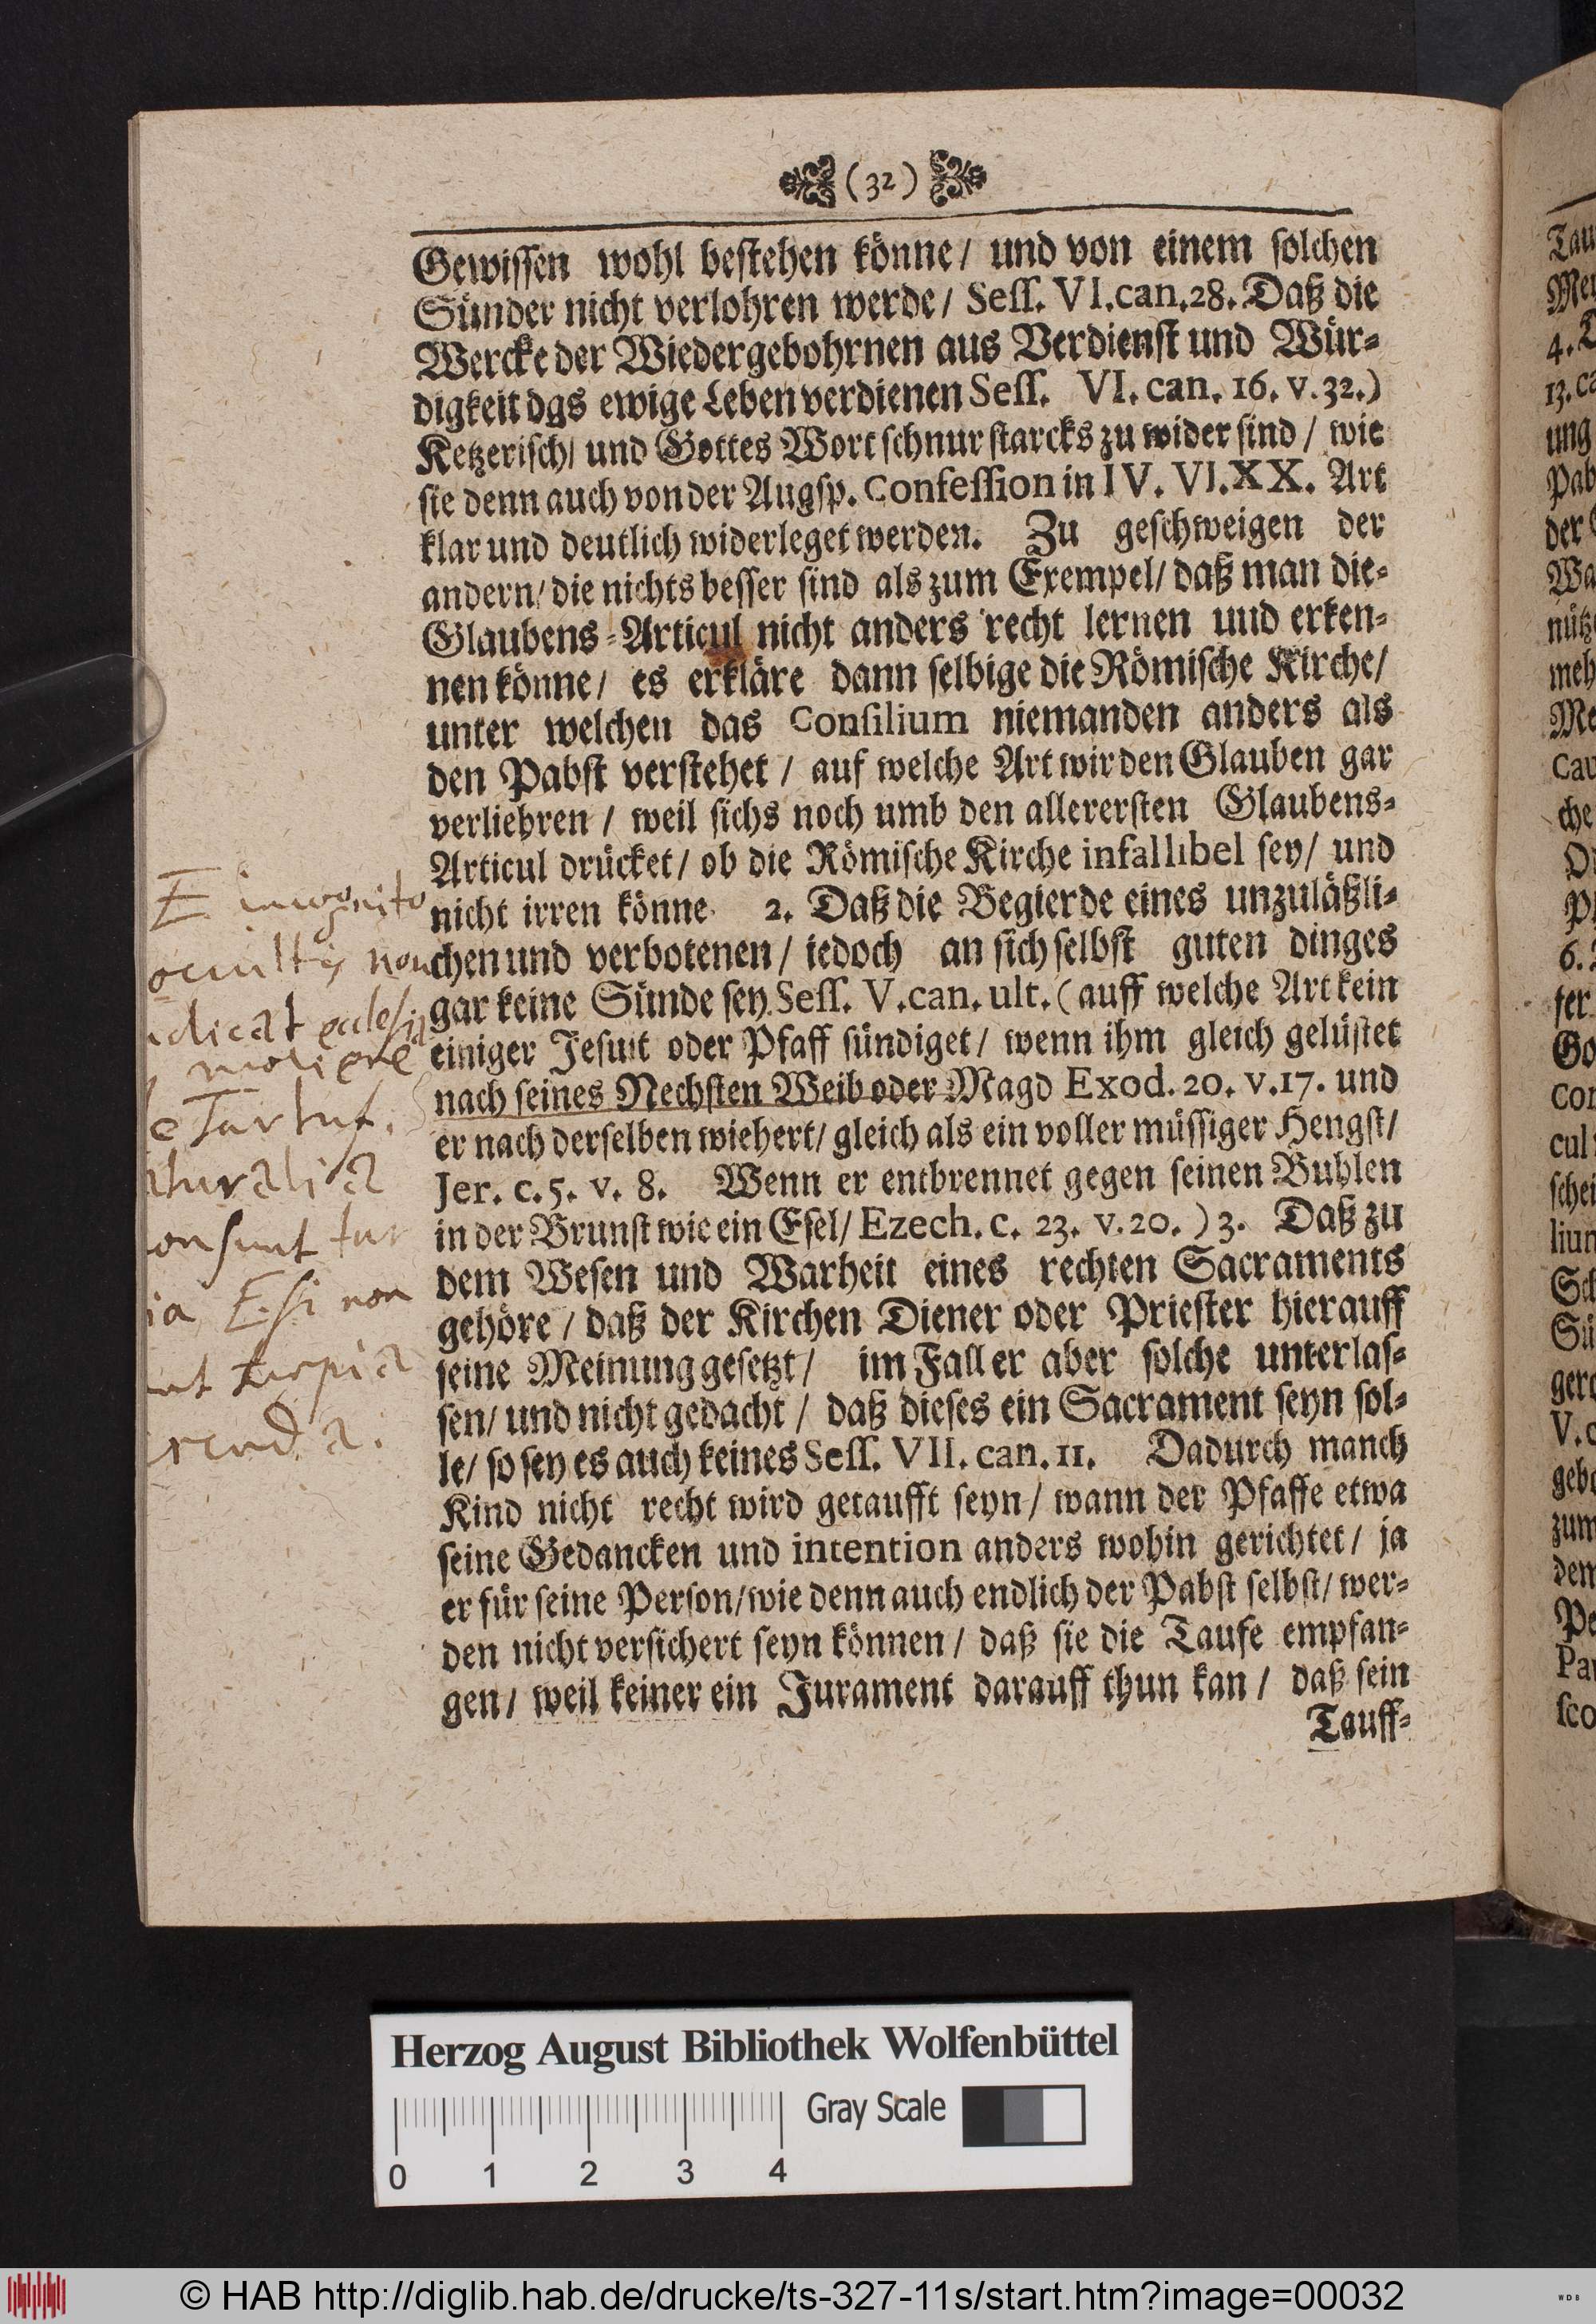 (32)
Gewissen wohl bestehen könne/ und von einem solchen
Sünder nicht verlohren werde/ Sess. VI.can.28. Daß die
Wercke der Wiedergebohrnen aus Verdienst und Wür-
digkeit dgs ewige Leben verdienen Sess. VI. can. 16. v. 32.)
Ketzerisch/ und Gottes Wort schnur starcks zu wider sind / wie
sie denn auch von der Augsp. Confession in IV. VI. XX. Art
klar und deutlich widerleget werden. Zu geschweigen der
andern/ die nichts besser sind als zum Exempel/ daß man die-
Glaubens-Articul nicht anders recht lernen und erken-
nen könne/ es erkläre dann selbige die Römische Kirche/
unter welchen das Consilium niemanden anders als
den Pabst verstehet / auf welche Art wir den Glauben gar
verliehren / weil sichs noch umb den allerersten Glaubens-
Articul drücket/ ob die Römische Kirche infallibel sey/ und
nicht irren könne. 2. Daß die Begierde eines unzuläßli-
chen und verbotenen/ jedoch an sich selbst guten dinges
gar keine Sünde sey Sess. V. can. ult. (auff welche Art kein
einiger Jesuit oder Pfaff sündiget/ wenn ihm gleich gelüstet
nach seines Nechsten Weib oder Magd Exod. 20. v. 17. und
er nach derselben wiehert/ gleich als ein voller müssiger Hengst/
Jer. c. 5. v. 8. Wenn er entbrennet gegen seinen Buhlen
in der Brunst wie ein Esel/ Ezech. c. 23. v. 20. ) 3. Daß zu
dem Wesen und Warheit eines rechten Sacraments
gehöre / daß der Kirchen Diener oder Priester hierauff
seine Meinung gesetzt/ im Fall er aber solche unterlas-
sen/ und nicht gedacht / daß dieses ein Sacrament seyn sol-
le/ so sey es auch keines Sess. VII. can. 11. Dadurch manch
Kind nicht recht wird getaufft seyn/ wann der Pfaffe etwa
seine Gedancken und intention anders wohin gerichtet/ ja
er für seine Person/ wie denn auch endlich der Pabst selbst/ wer-
den nicht versichert seyn können/ daß sie die Taufe empfan-
gen/ weil keiner ein Jurament darauff thun kan/ daß sein
Tauff-
E incognito
occultis non
dicat ecclesia
moliere
e Tartuf.
turalia
on sunt tur
ia E. si non
nt turpia
renda.
Tau
4.
13. ca
ung
Pab
der
Wa
nütz
meh
Me
cau
che
6.
ter
Go
con
cul
schei
liun
Sü
V. c
gebe
zum
dem
Pe
Par
sco
Herzog August Bibliothek Wolfenbüttel
Gray Scale
0 1 2 3 4
© HAB http://diglib.hab.de/drucke/ts-327-11s/start.htm?image=00032
WDB